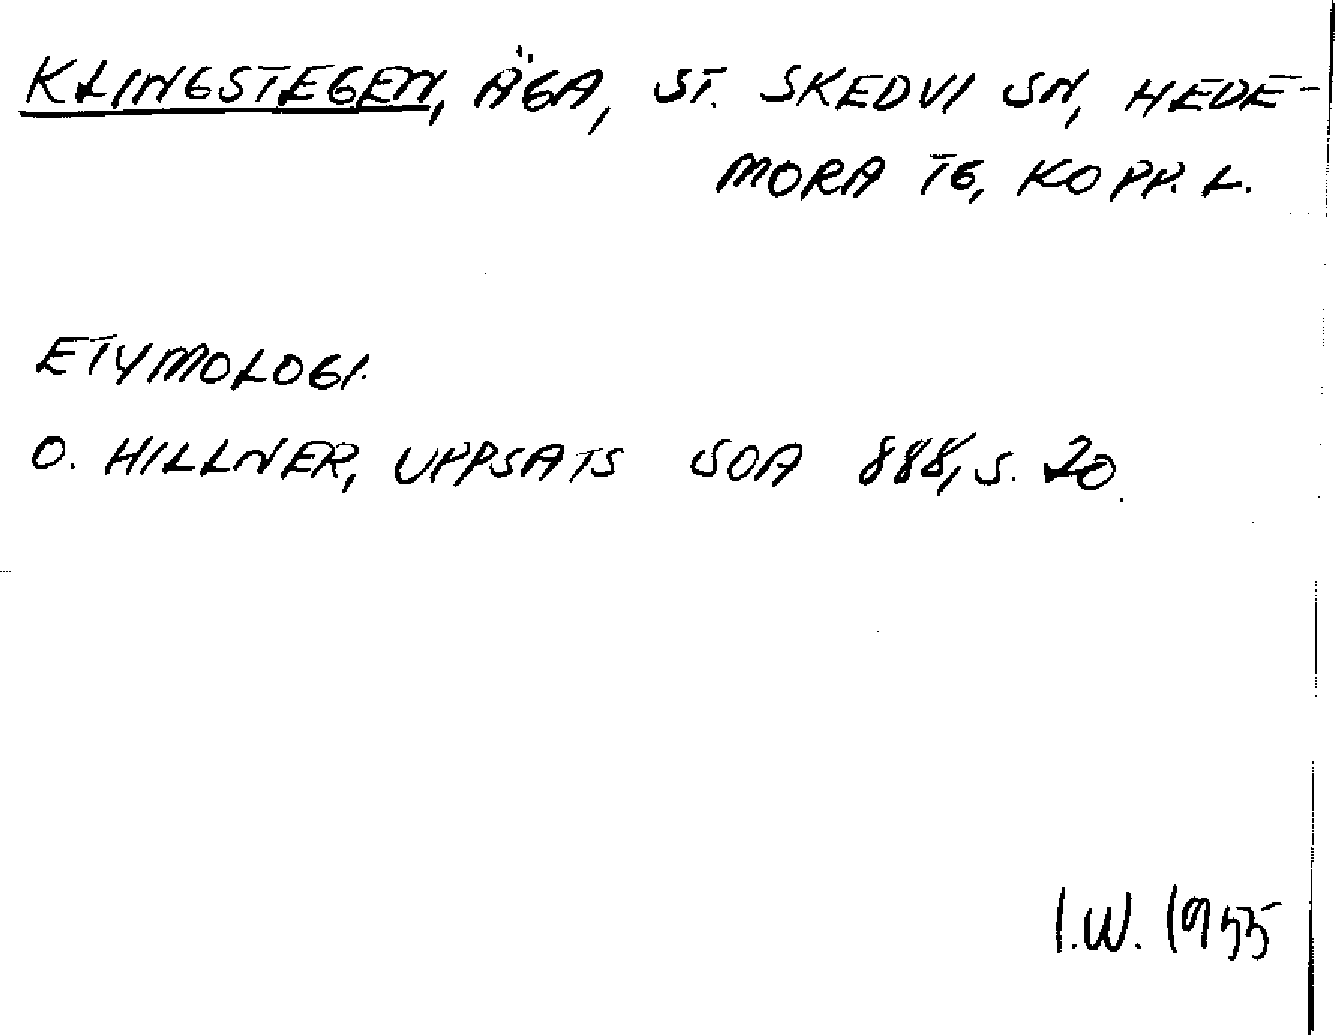 KLINGSTEGEN, ÄGA, ST. SKEDVI SN, HEDE-
MORA TG, KOPP. L.
ETYMOLOGI.
O. HILLNER, UPPSATS SOA 888, S. 20
I.W. 1955